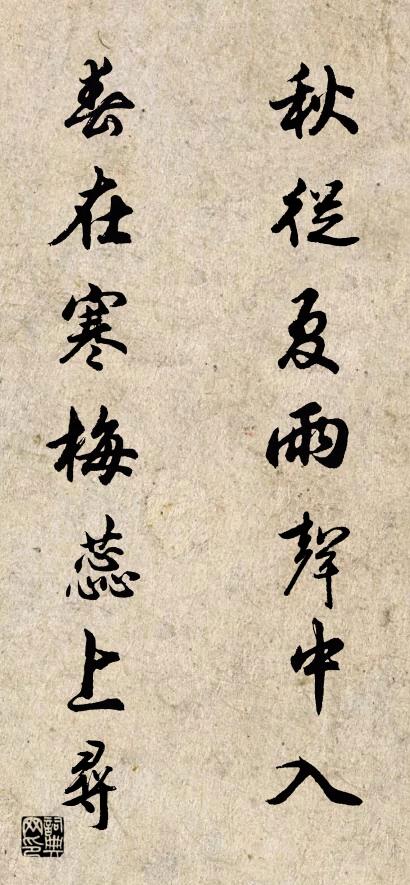 秋從夏雨聲中入
春在寒梅蕊上尋
詞典
网印